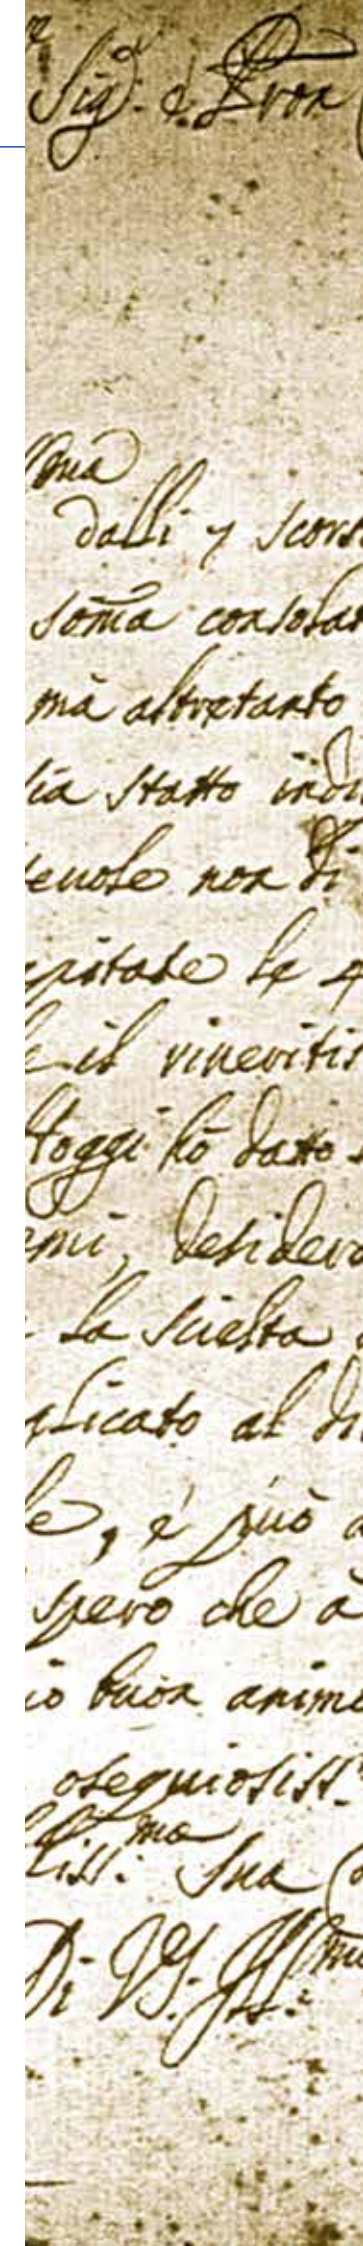 Sig.r e Pron
ma
dalli 7 scors
somã consolat
mà altretanto
ia statto indu
euole non di
apitate le
il riueritis
Hoggi hò datto
mi, desidero
la scielta
plicato al
e, e può a
spero che à
io buon animo
osequiosiss.
liss.ma Sua
Di V.S. Ill.ma